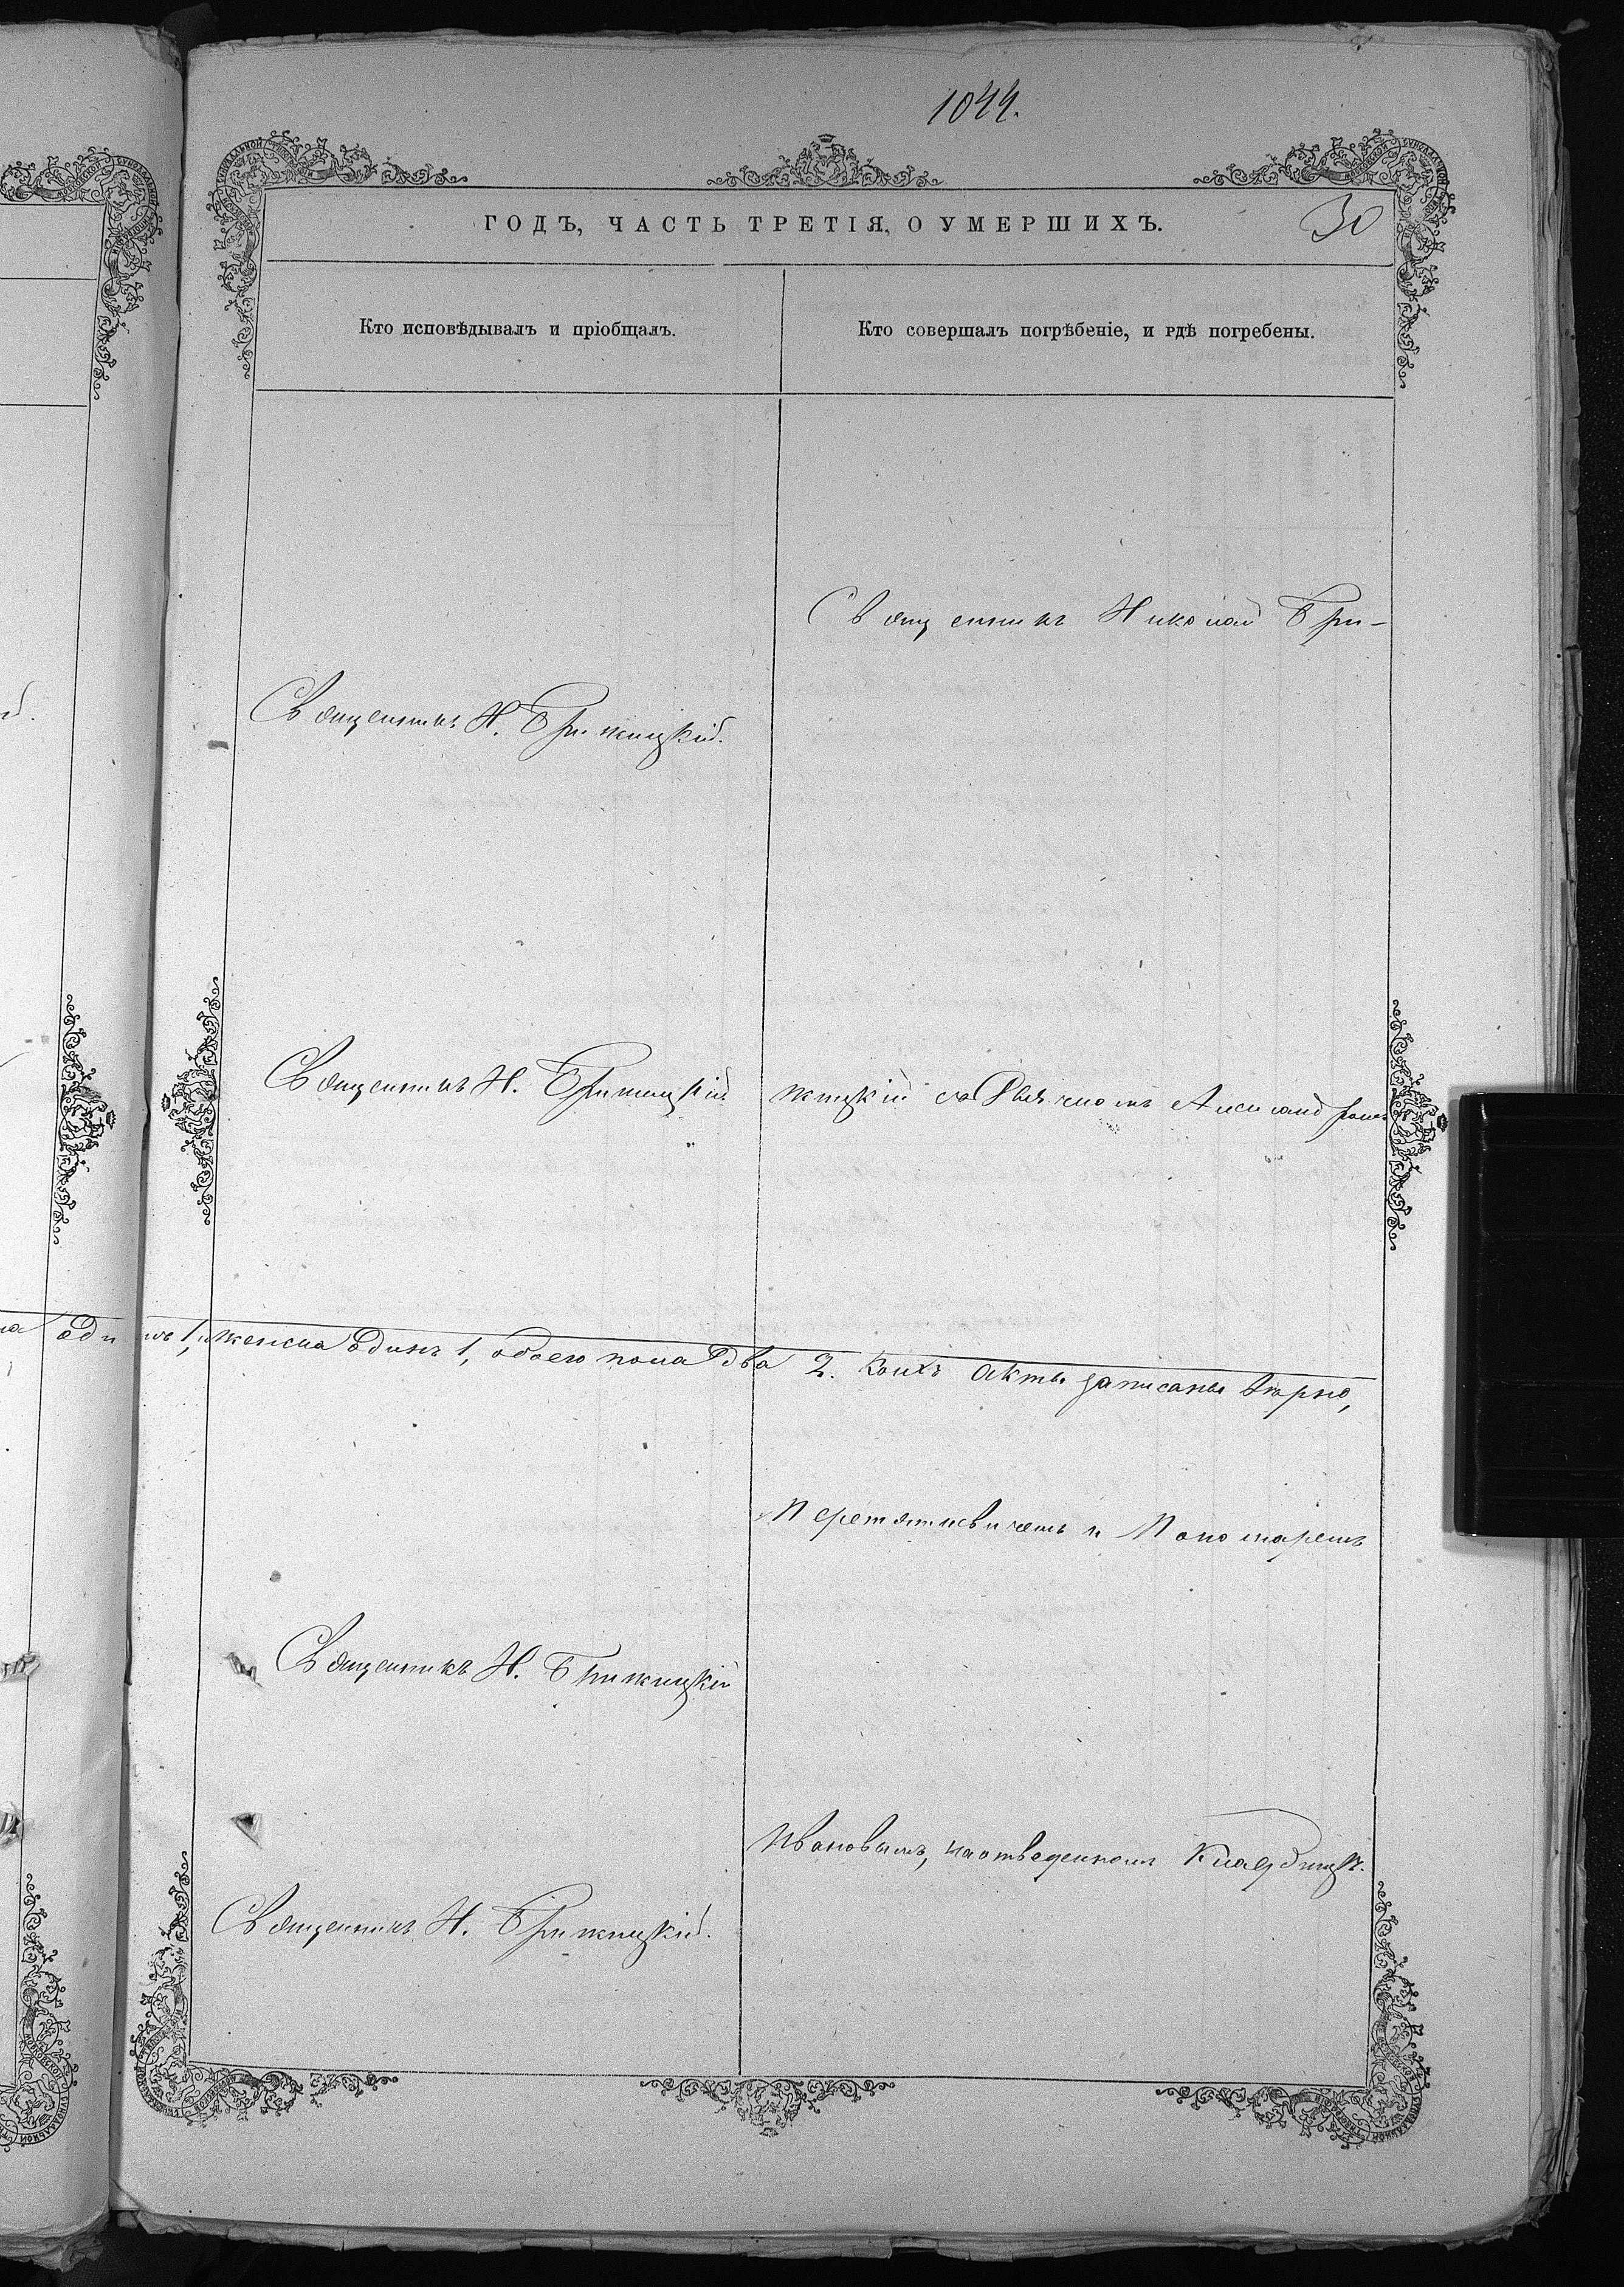 1044.
ГОДЪ, ЧАСТЬ ТРЕТІЯ, О УМЕРШИХЪ.
30
Кто исповѣдывалъ и пріобщалъ.
Кто совершалъ погрѣбеніе, и гдѣ погребены.
Священникъ Николай Бри-
Священникъ Н. Брижицкій.
Священникъ Н. Брижицкій
жицкій съ Дьячкомъ Александромъ
одинъ 1, и женска одинъ 1, обоего пола два 2. Коихъ акты записаны вѣрно,
и Пономаремъ
Священникъ Н. Брижицкій
Ивановымъ, на отведенномъ Кладбищѣ.
Священникъ Н. Брижицкій.